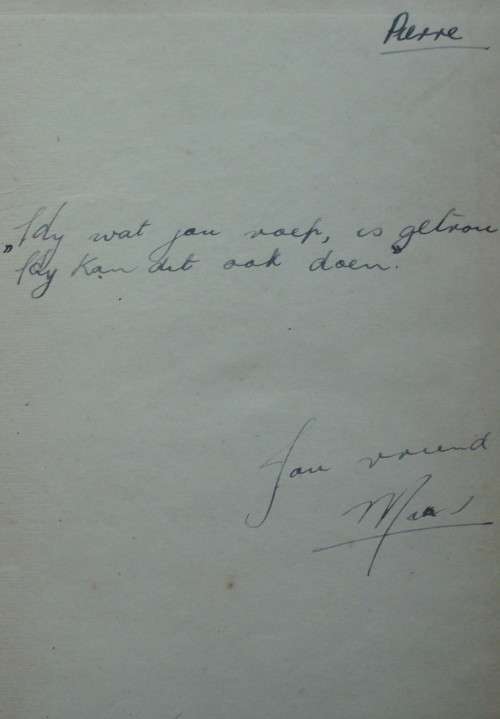 Pierre
„Hy wat jou roep, is getrou
Hy kan dit ook doen."
Jou vriend
Maas